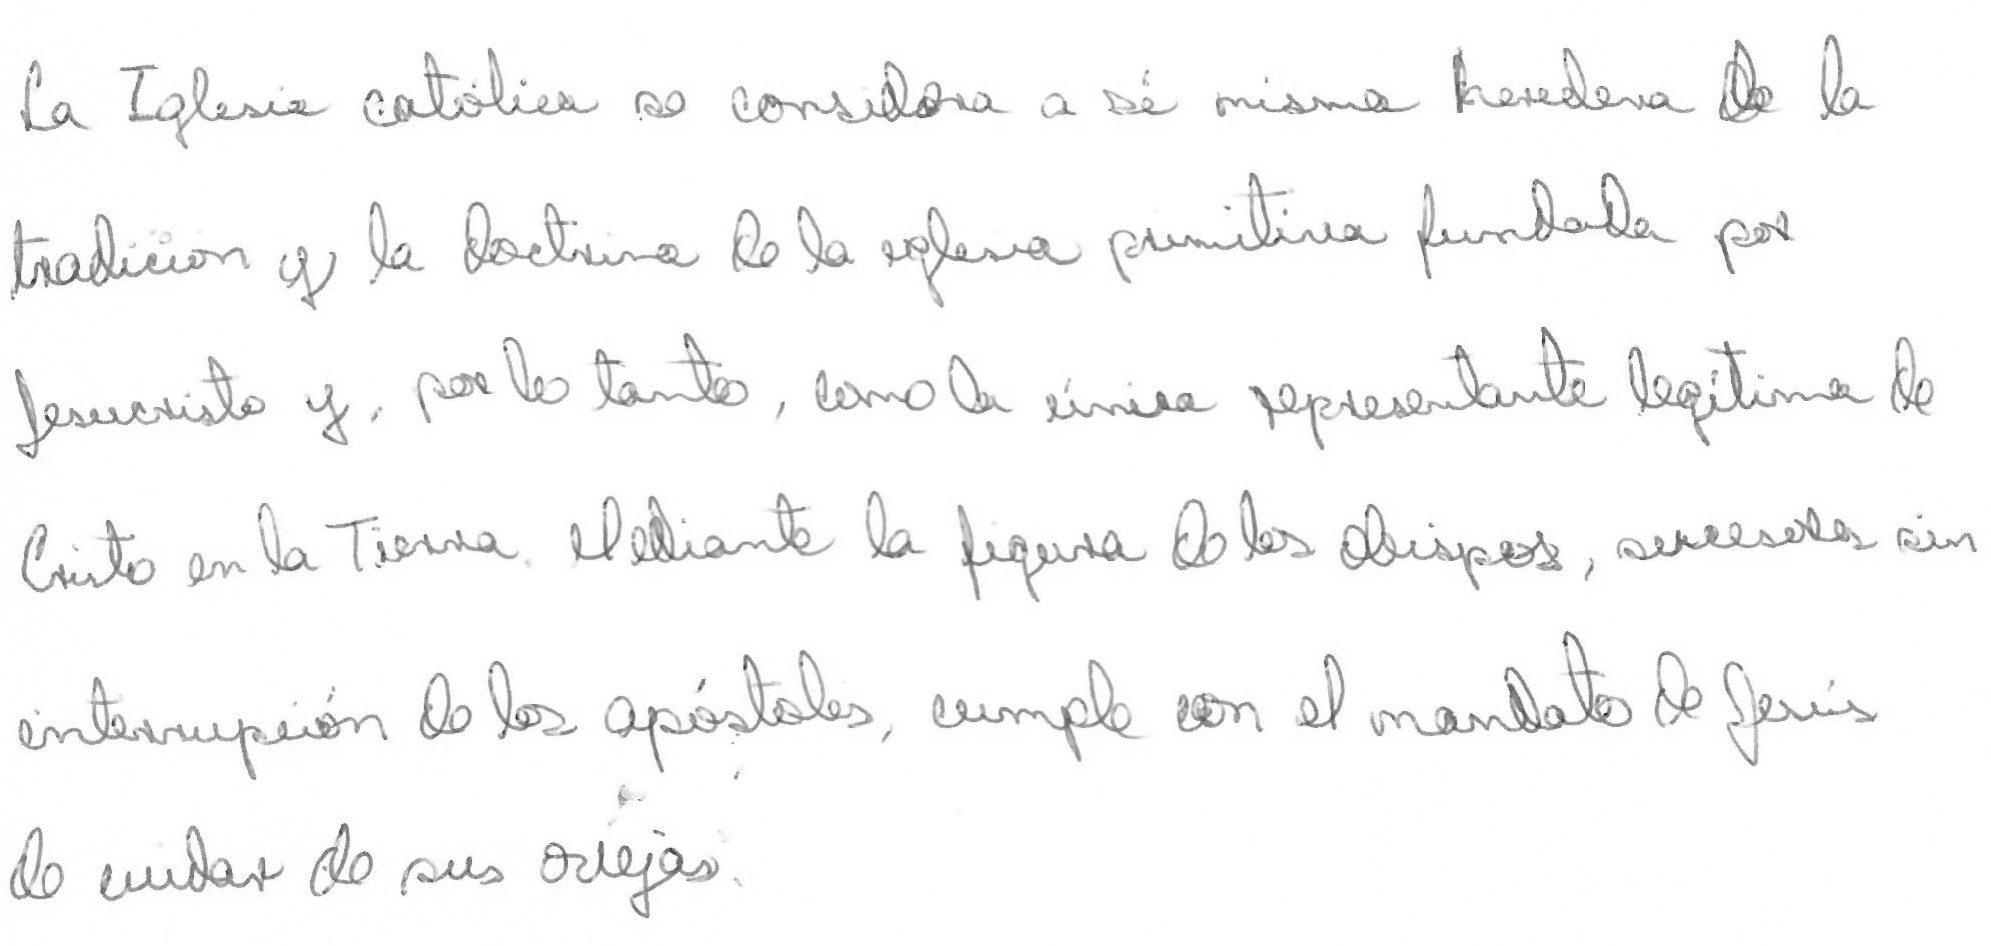 La Iglesia católica se considera a sí misma heredera de la
tradición y la doctrina de la iglesia primitiva fundada por
Jesucristo y, por lo tanto, como la única representante legítima de
Cristo en la Tierra. Mediante la figura de los obispos, sucesores sin
interrupción de los apóstoles, cumple con el mandato de Jesús
de cuidar de sus ovejas.